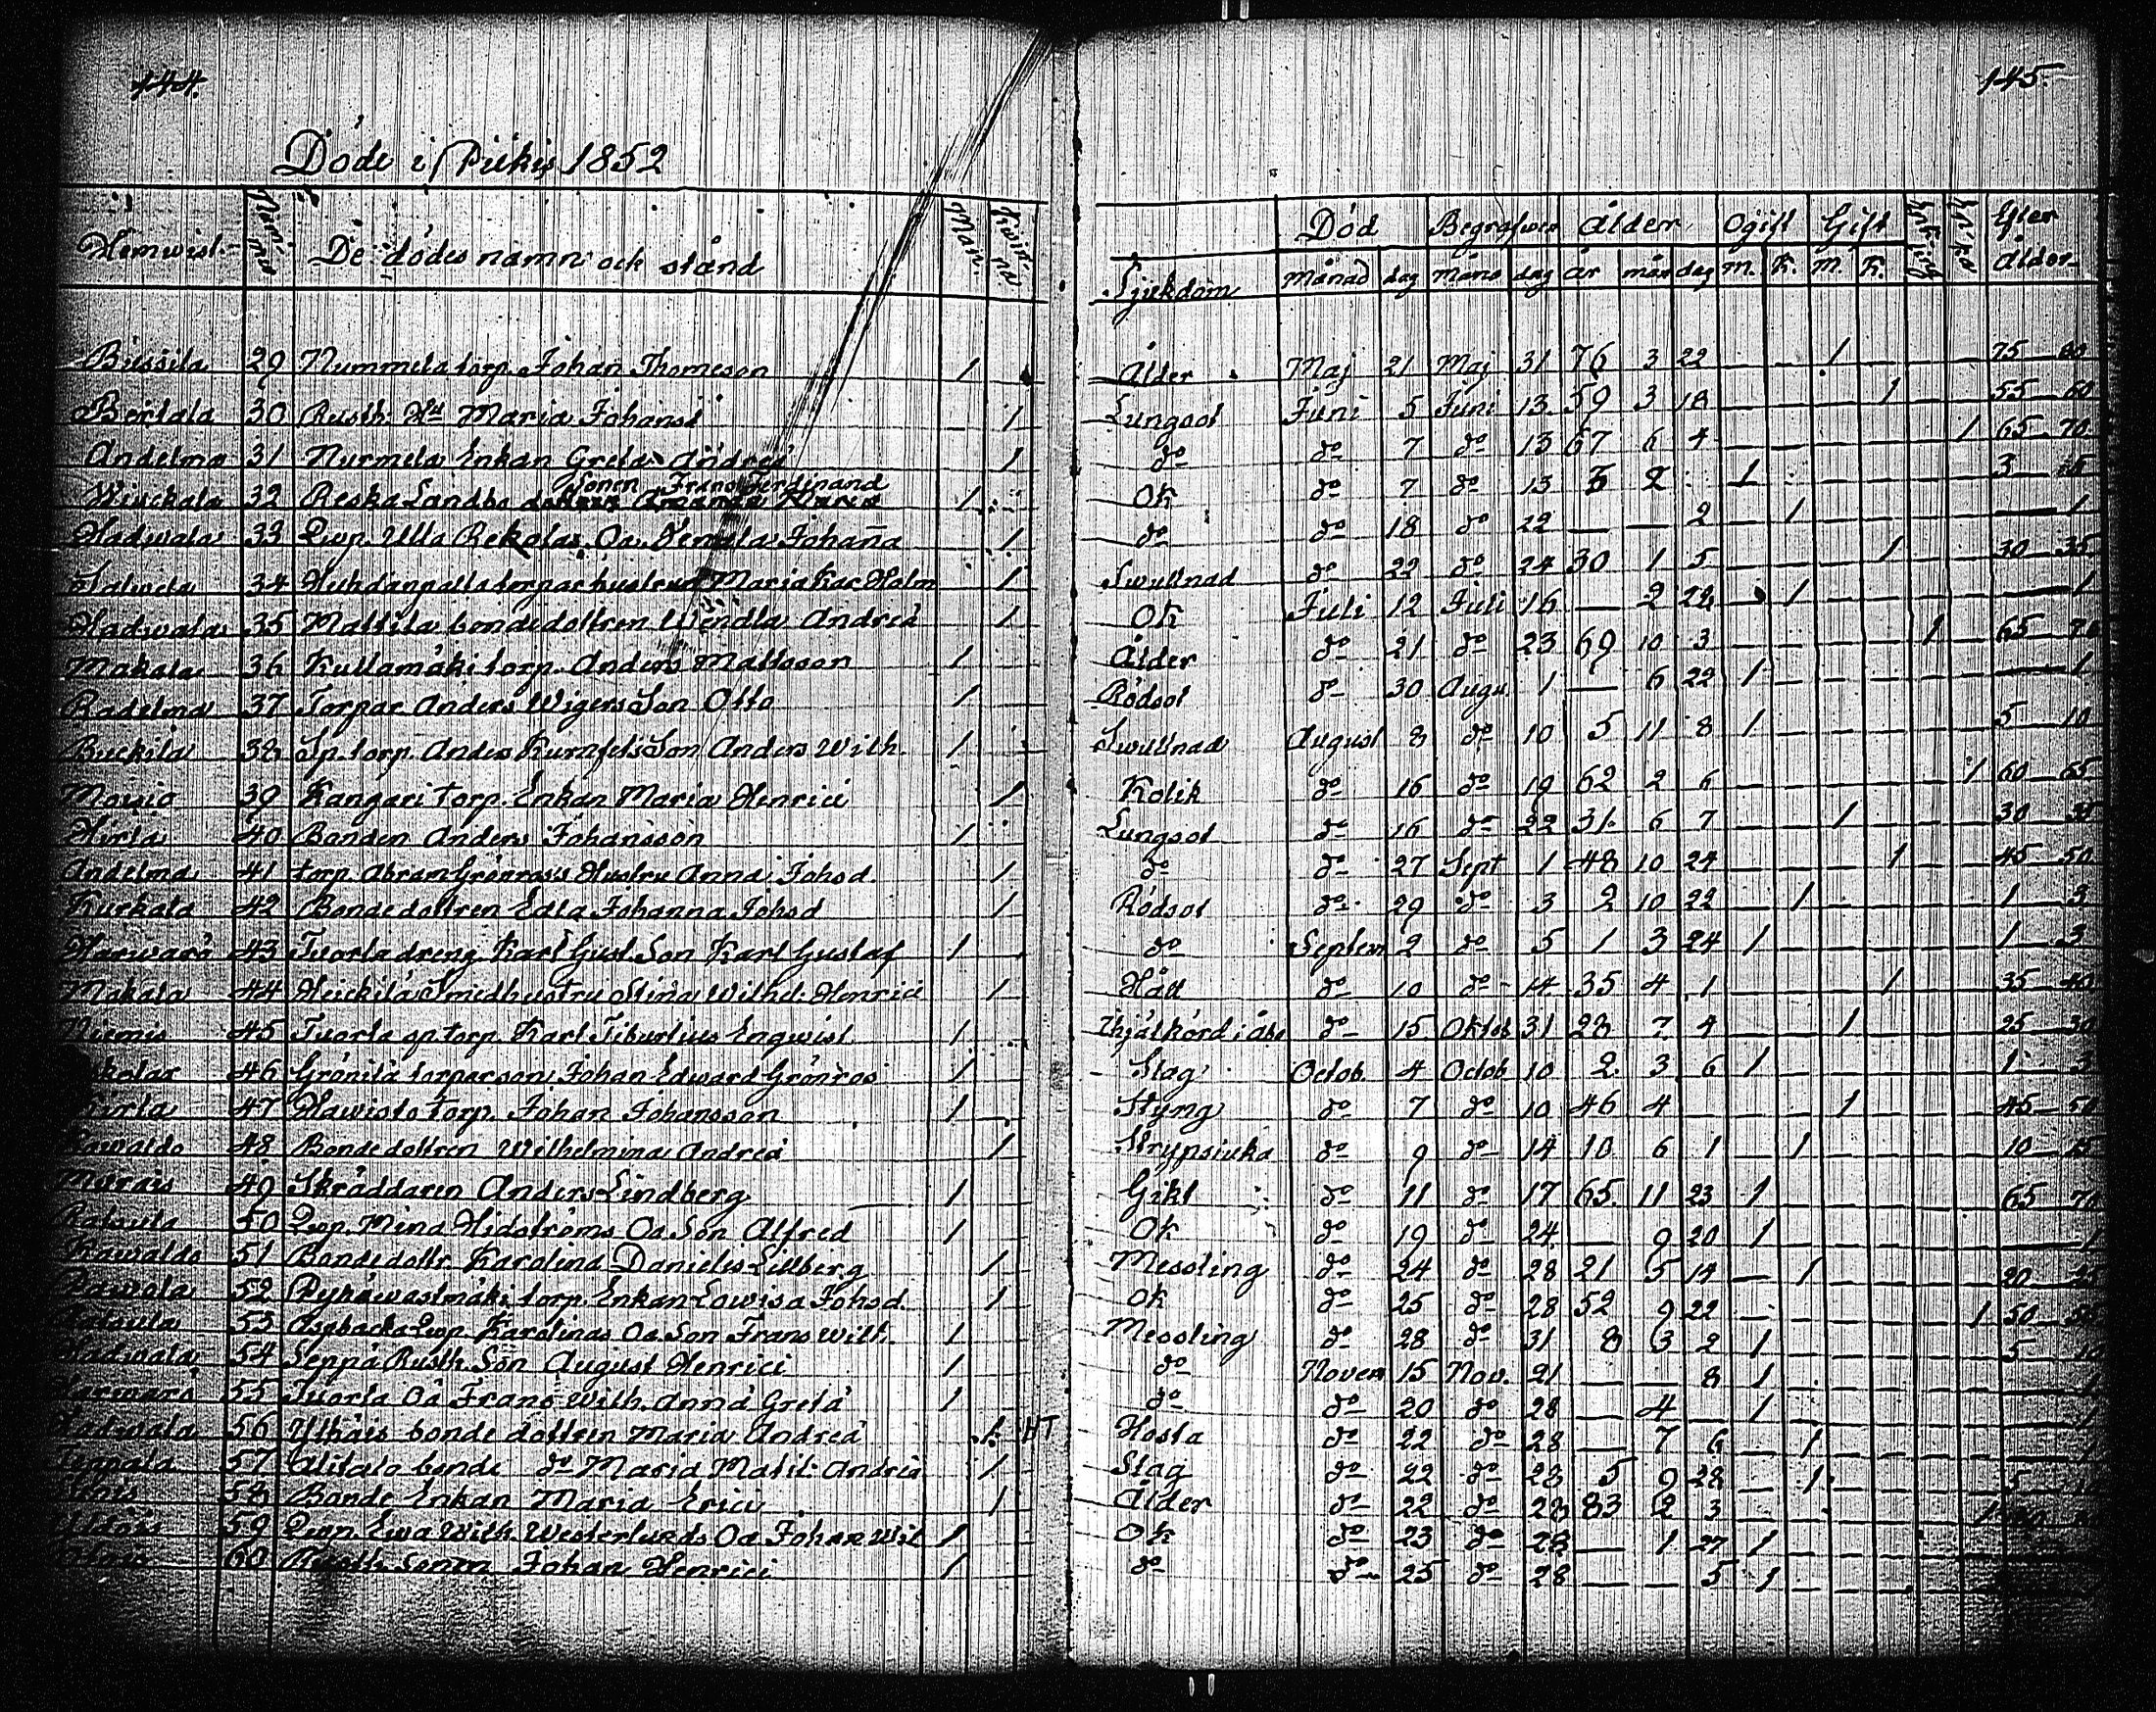 144.
145.
Döde i Pikis 1852
Hemwist. Nummer De dödes namn och stånd Man. Qwinna Sjukdom Död Begrafwen Ålder Ogift Gift Enkling Enka Efter ålder
månad dag månd dag år mån dag m. K. M. K.
Bussila 29 Nummela torp. Johan Thomeson 1 Ålder Maj 21 Maj 31 76 3 22 — — 1 — — — 75 — 80
Bertala 30 Rusth. Hu Maria Johansd 1 Lungsot Juni 5 Juni 13 59 3 18 — — — 1 — — 55 — 60
Andelma 31 Nurmela Enkan Greta Andreæ 1 do do 7 do 13 67 6 4 — — — — — 1 65 — 70
Sonen Frans Ferdinand
Wisckala 32 Reska Landbo 1 Ok do 7 do 13 2 1 3
Hadwala 33 Qwp. Ulla Rekolas Oä. Johaña 1 do do 18 do 22 — — 2 — 1 — 1
34 torpar hustrun Maria Holm 1 Swullnad do 22 do 24 30 1 5 1 30 — 35
Hadwala 35 Mattila bondedottren Wendla Andreæ 1 Ok Juli 12 Juli 16 — 2 22 — 1 — 1
Makala 36 Kullamäki torp. Anders Mattsson 1 Ålder do 21 do 23 69 10 3 — — — — 1 — 65 — 70
Radelma 37 Torpar Anders Wigers Son Otto 1 Rödsot do 30 Augu. 1 — 6 22 1 — — 1
38 Sp. torp. Anders Son Anders Wilh. 1 Swullnad August 8 do 10 5 11 8 1 — — 5 — 10
Moisio 39 Kangari torp. Enkan Maria Henrici 1 Kolik do 16 do 19 62 2 6 — — — — — 1 60 — 65
Hirla 40 Bonden Anders Johansson 1 Lungsot do 16 do 22 31 6 7 — — 1 — — — 30 — 35
Andelma 41 torp. Abram Grönroos's Hustru Anna Johsd. 1 do do 27 Sept 1 48 10 24 — — — 1 — — 45 — 50
Kuckala 42 Bondedottren Edla Johanna Johsd 1 Rödsot do 29 do 3 2 10 22 — 1 — — 1 — 3
Harwarö 43 Tuorla dreng Karl Gust. Son Karl Gustaf 1 do Septem 2 do 5 1 3 24 1 — — 1 — 3
Makala 44 Heickilä Smedhustru Stina Wilhel. Henrici 1 Håll do 10 do 14 35 4 1 — — — 1 — — 35 — 40
Niemis 45 Tuorla sp. torp. Karl Tiburtius Enqwist 1 ihjälkörd i Åbo do 15 Oktob 31 28 7 4 — — 1 — — 25 — 30
46 Grönilä torparson Johan Edward Grönros 1 Slag Octob. 4 Octob 10 2 3 6 1 — — 1 — 3
47 Hawisto torp. Johan Johansson 1 Styng do 7 do 10 46 4 — — — 1 — — 45 — 50
48 Bondedottren Wilhelmina Andreæ 1 Strypsiuka do 9 do 14 10 6 1 — 1 — — 10 — 15
49 Skräddaren Anders Lindberg 1 Gikt do 11 do 17 65 11 23 1 — — 65 — 70
50 Qwp. Mina Hidströms Oä. Son Alfred 1 Ok do 19 do 24 — 9 20 1 — — 1
Kawaldo 51 Bondedottr. Karolina Danielis Lillberg 1 Messling do 24 do 28 21 5 14 — 1 — — 20 — 25
52 torp. Enkan Lowisa Johsd. 1 Ok do 25 do 28 52 9 22 — — — — 1 50 — 55
53 Aspbacka Qwp. Karolinas Oä. Son Frans Wilh. 1 Messling do 28 do 31 8 3 2 1 — — 5 — 10
Hadwala 54 Seppä Rusth. Son August Henrici 1 do Novem 15 Nov. 21 — — 8 1 — — 1
55 Tuorla Oä Frans Wilh. Anna Greta 1 do do 20 do 28 — 4 — 1 — — 1
Hadwala 56 bonde dottren Maria Andreæ 1 HT Hosta do 22 do 28 — 7 6 — 1 — — 1
57 Alitalo bonde do Maria Matil. Andreæ 1 Slag do 22 do 28 5 9 28 — 1 — — 5
58 Bonde Enkan Maria Erici 1 Ålder do 22 do 28 83 2 3 — — — — 1
59 Qwp. Ewa Wilh. Westerlunds Oä. Johan Wil 1 Ok do 23 do 28 — 1 27 1 — —
60 Rusth. Sonen Johan Henrici 1 do do 25 do 28 — — 5 1 — —